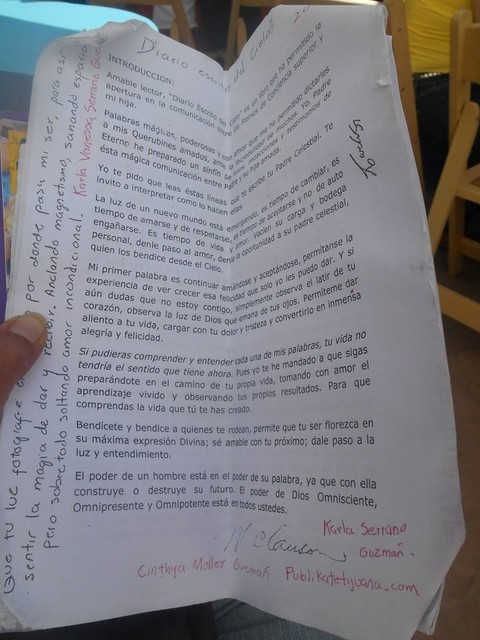 Diario escrito del Cielo. 20
INTRODUCCION:
Amable lector, "Diario Escrito del Cielo" es un libro que ha permitido la
apertura en la comunicación entre los Ramos de Conciencia superior y
mi hija.
Palabras mágicas, poderosas y con amor que me ha permitido dictarles
a mis Querubines amados, ante la incredulidad de muchos. Yo, Padre
Eterno he preparado un sinfín de
ésta mágica comunicación entre Padre y su hija amada.
Yo te pido que leas éstas líneas que te escribe tu Padre Celestial. Te
invito a interpretar como lo hacen ellas.
La luz de un nuevo mundo está emergiendo, es tiempo de cambiar, es
tiempo de amarse y de respetarse, es tiempo de aceptarse y no de auto
engañarse. Es tiempo de vida y amor. Vacíen su carga y bodega
personal, denle paso al amor, denle la oportunidad a su padre celestial,
quien los bendice desde el Cielo.
Mi primer palabra es continuar amándose y aceptándose, permítanse la
experiencia de ver crecer esa felicidad que solo yo les puedo dar. Y si
aún dudas que no estoy contigo, simplemente observa el latir de tu
corazón, observa la luz de Dios que emana de tus ojos. Permíteme dar
aliento a tu vida, cargar con tu dolor y tristeza y convertirlo en inmensa
alegría y felicidad.
Si pudieras comprender y entender cada una de mis palabras, tu vida no
tendría el sentido que tiene ahora. Pues yo te he mandado a que sigas
preparándote en el camino de tu propia vida, tomando con amor el
aprendizaje vivido y observando tus propios resultados. Para que
comprendas la vida que tú te has creado.
Bendícete y bendice a quienes te rodean, permite que tu ser florezca en
su máxima expresión Divina; sé amable con tu próximo; dale paso a la
luz y entendimiento.
El poder de un hombre está en el poder de su palabra, ya que con ella
construye o destruye su futuro. El poder de Dios Omnisciente,
Omnipresente y Omnipotente está en todos ustedes.
Karla Serrano
Guzmán.
Cinthya Moller Publikatetijuana.com
Que tu luz fotografie por donde pasa mi ser, para así
sentir la magia de dar y recibir. Anclando magnetismo, sanando espacio
pero sobre todo soltando amor incondicional. Karla Vanessa Serrano